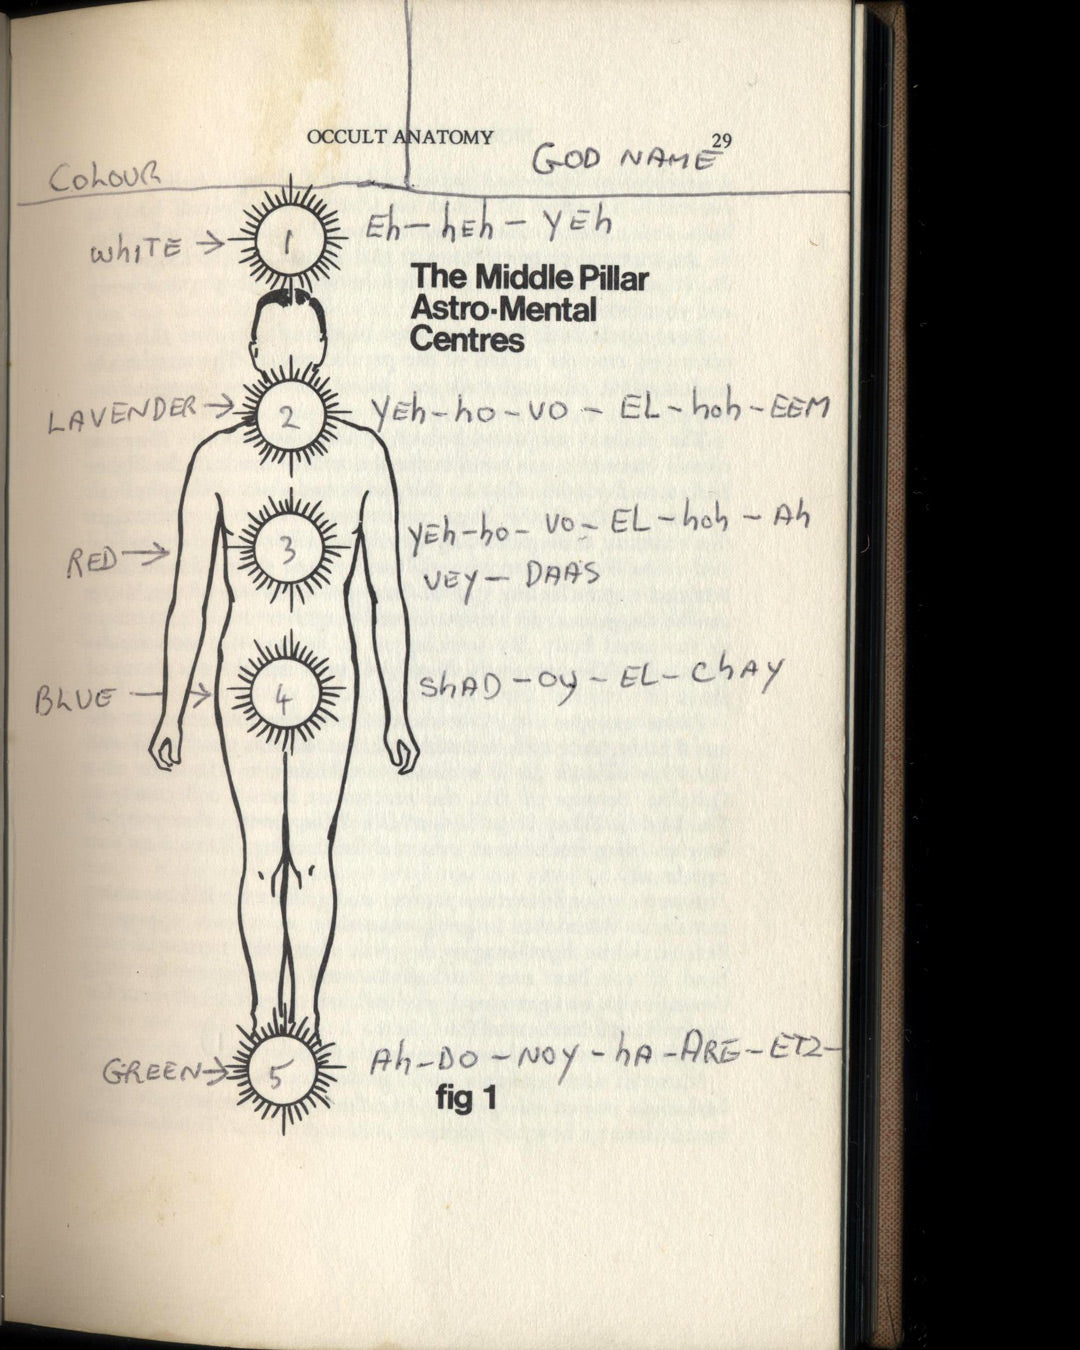 OCCULT ANATOMY 29
COLOUR GOD NAME
WhITE → 1 Eh - hEh - YEh
The Middle Pillar
Astro-Mental
Centres
LAVENDER → 2 YEh - ho - vo - EL - hoh - EEM
3 YEh - ho - vo - EL - hoh - Ah
RED →
VEY - DAAS
BLUE → 4 ShAD - oy - EL - ChAY
GREEN → 5 Ah - DO - NOY - hA - ARE - ETZ -
fig 1